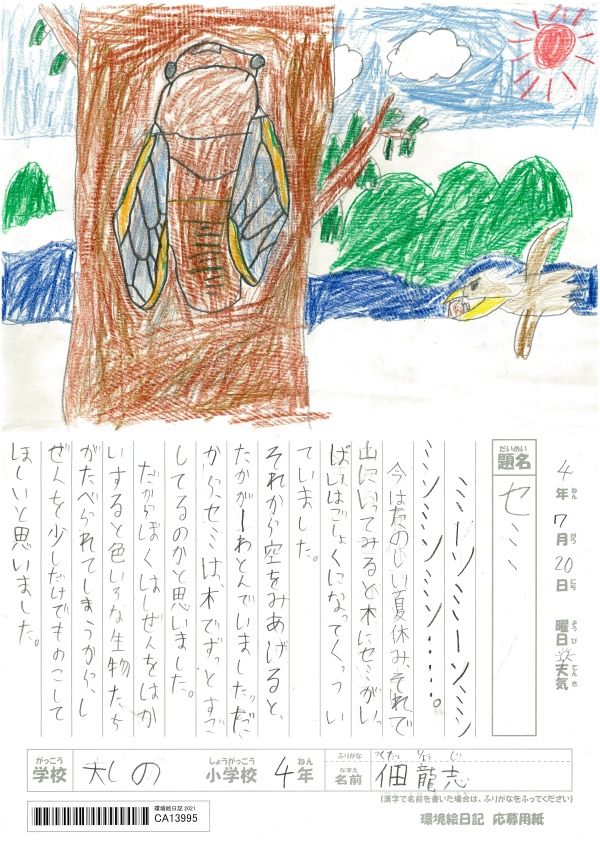 4年ねん7月がつ20日にち 曜日ようび 天気てんき
題名だいめい
セミ
ミーンミーンミン
ミンミンミン‥‥。
今はたのしい夏休み、それで
山にいってみると木にセミがいっ
ぱいほごしょくになってくっつい
ていました。
それから空をみあげると、
たかが一わとんでいました。だ
から、セミは、木でずっとすご
してるのかと思いました。
だからぼくはしぜんをはか
いすると色いろな生物たち
がたべられてしまうから、し
ぜんを少しだけでものこして
ほしいと思いました。
がっこう しょうがっこう ねん ふりがな つくだ りゅう じ
学校 の 小学校 4年 なまえ 名前 佃 龍志
(漢字で名前を書いた場合は、ふりがなをふってください)
環境絵日記 2021
CA13995
環境絵日記 応募用紙